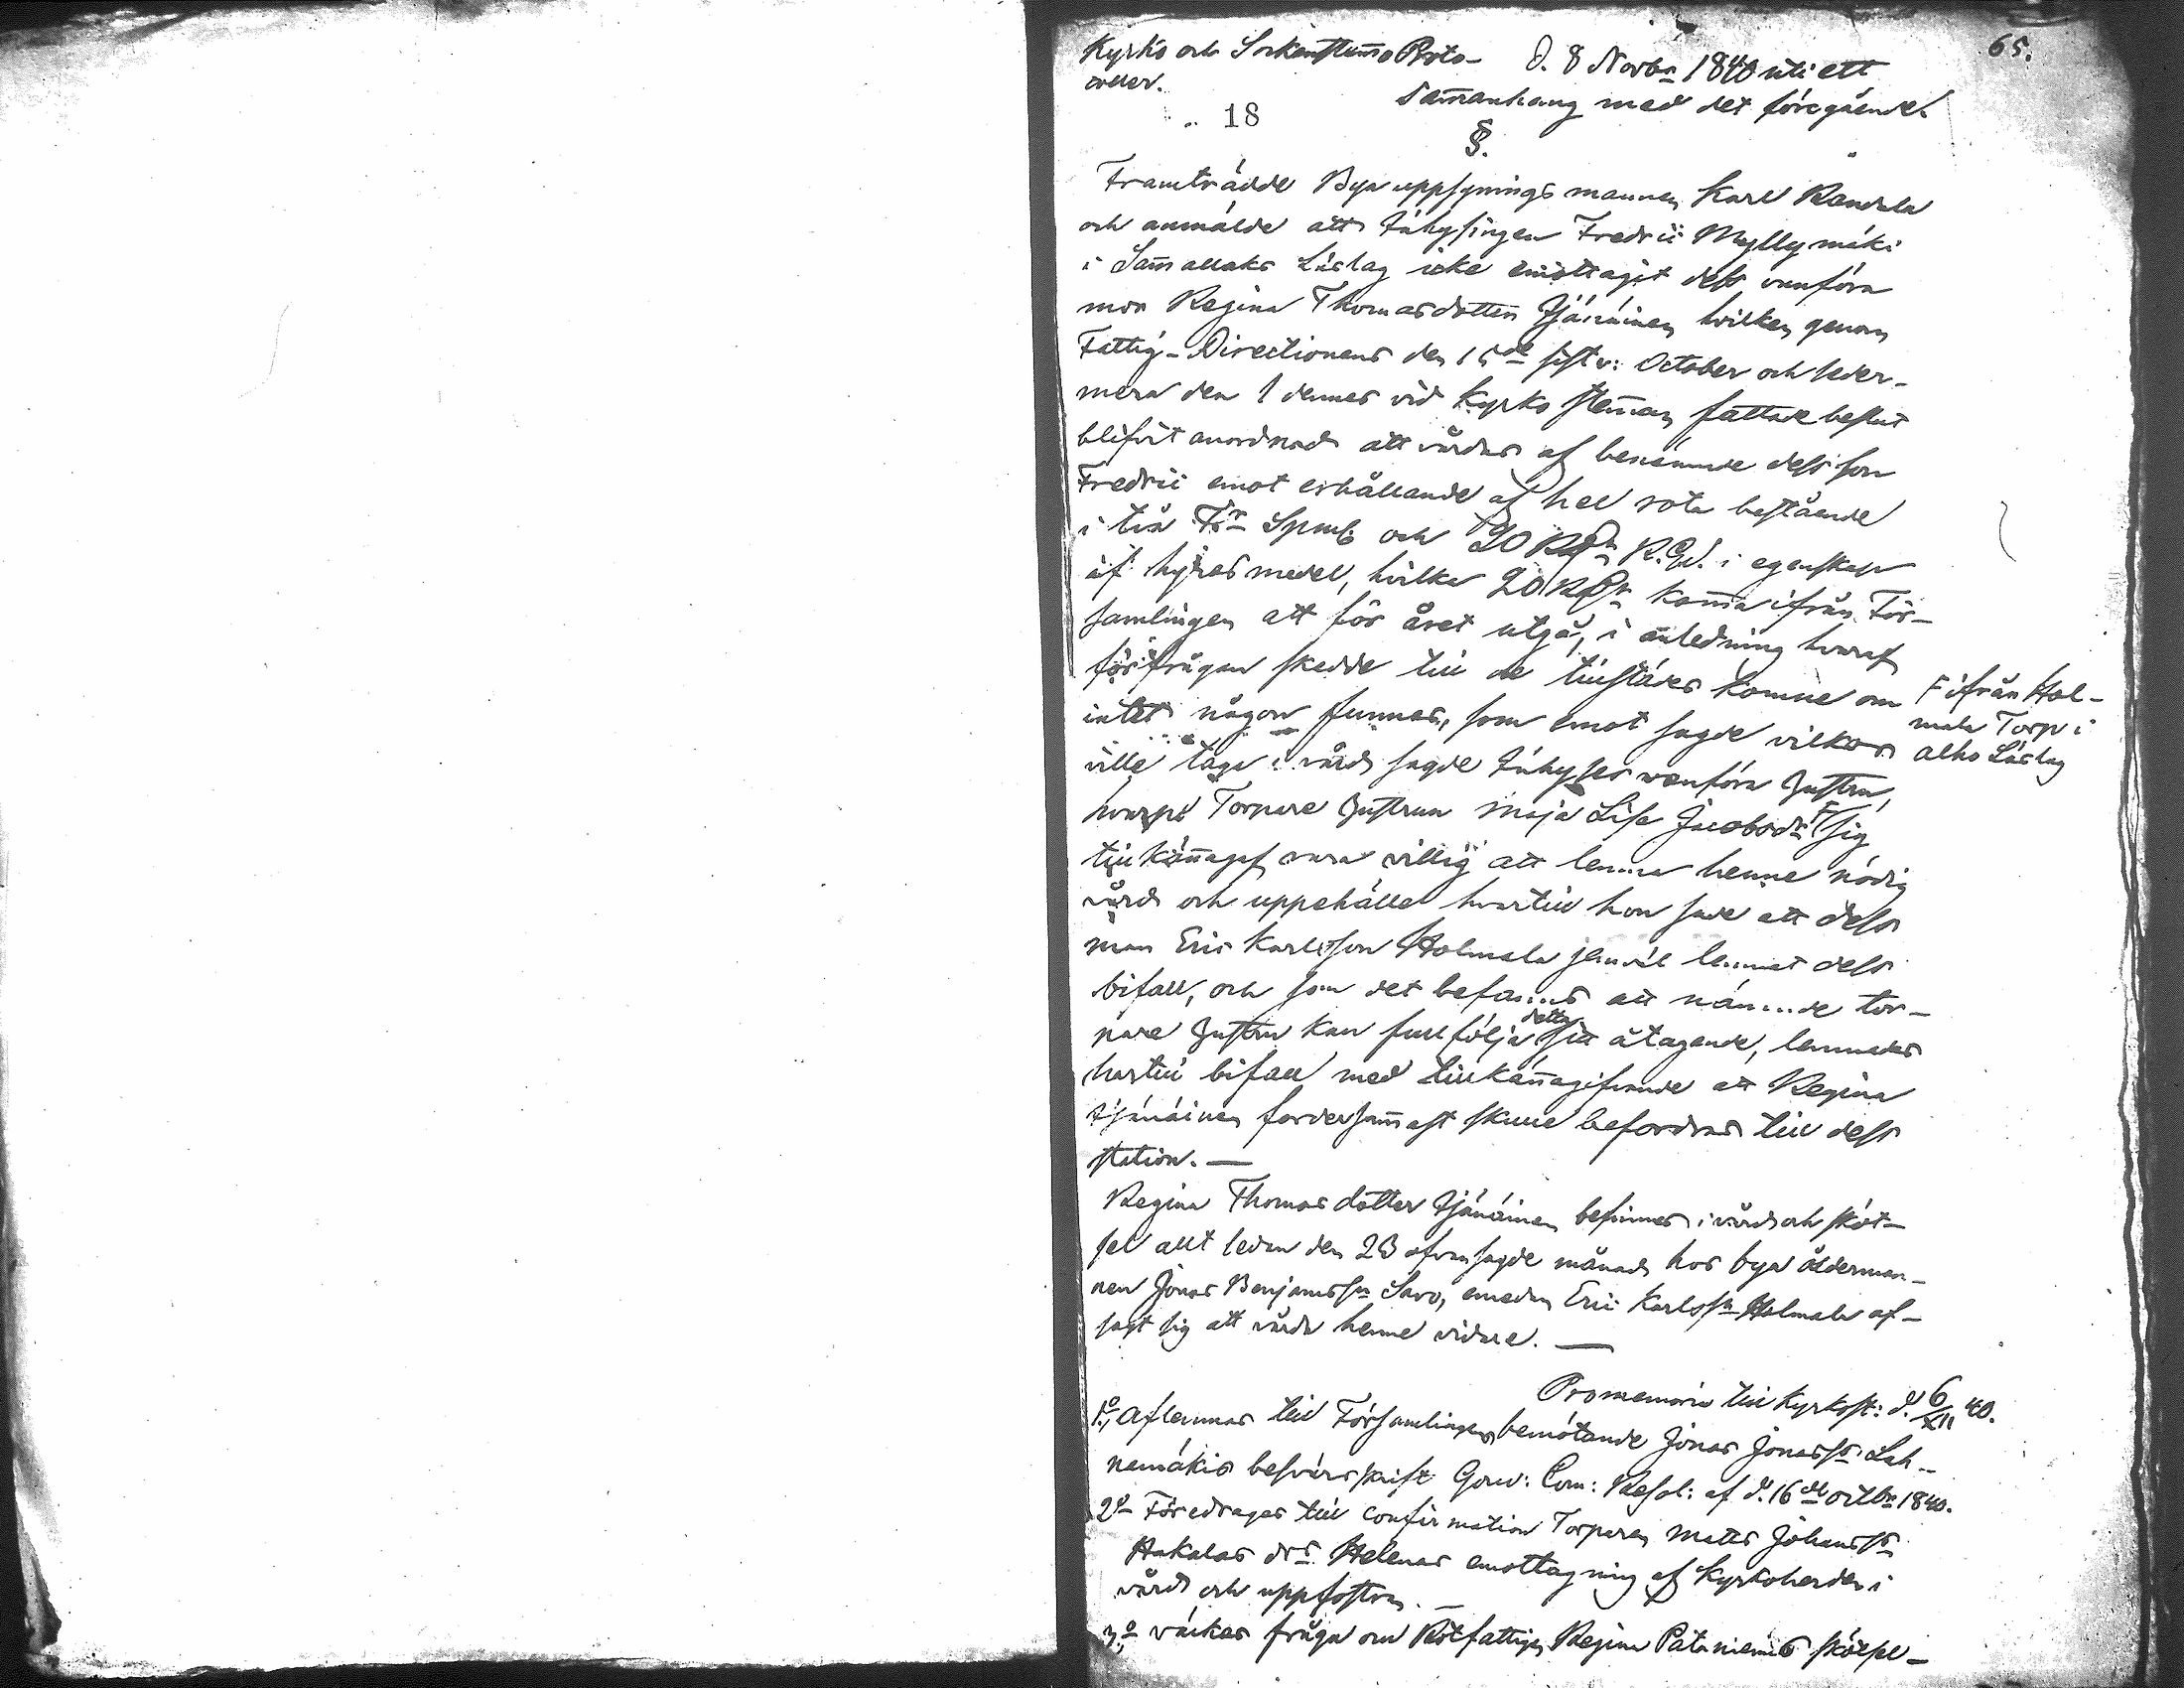 65.
Kyrko och Sockenstemo Proto-
coller.
18
D. 8 Novbr 1840 uti ett
sam̄anhang med det föregående.
§.
Framträdde Byauppsynings mannen Karl Randala
och anmälde att Inhysingen Fredric Myllymäki
i Sam̄allaks Läslag icke emottagit dess vanföra
mor Regina Thomasdotter Tjänäinen hvilken genom
Fattig-Directionens den 15de sistv: October och seder-
mera den 1 dennes vid Kyrko stem̄an fattade beslut
blifvit anordnad att vårdas af benämnde dess son
Fredric emot erhållande af hel rota bestående
i tio Tr Spml och 20 R. Gd. i egenskap
af hyres medel, hvilka 20 kom̄a ifrån För-
samlingen att för året utgå, i anledning hvaraf
förfrågan skedde till de tillstädes komne om
intet någon funnes, som emot sagde vilkor
ville taga i vård sagde Inhyses vanföra Hustru,
hvarpå Torpare Hustrun Maja Lisa Jacobsdr F sig
F ifrån Hol-
mala Torp i
Alho Läslag
tillkän̄agaf vara villig att lemna henne nödig
vård och uppehälle hvartill hon sade att dess
man Eric Karlsson Holmala jemväl lemnat dess
bifall, och som det befanns att nämnde tor-
pare Hustru kan fullfölja detta sitt åtagande, lemnades
härtill bifall med tillkän̄agifvande att Regina
Tjänäinen fordersam̄ast skulle befordras till dess
station. —
Regina Thomasdotter Tjänäinen befinnes i vård och sköt-
sel allt sedan den 23 ofvansagde månad hos bya ålderman-
nen Jonas Benjamssn Savo, emedan Eric Karlssn Holmala af-
sagt sig att vårda henne vidare. —
Promemoria till Kyrkost: d. 6/XII 40.
1o, Aflemnas till Församlingens bemötande Jonas Jonassn Lah-
nemäkis besvärsskrift Gouv: Com: Resol: af d. 16de Octbr 1840.
2o Föredrages till confirmation Torparen Matts Johanssn
Hakalas drs Helenas emottagning af Kyrkoherden i
vård och uppfostran. —
3o, väckes fråga om Rotfattigen Regina Pataniemis skötsel-